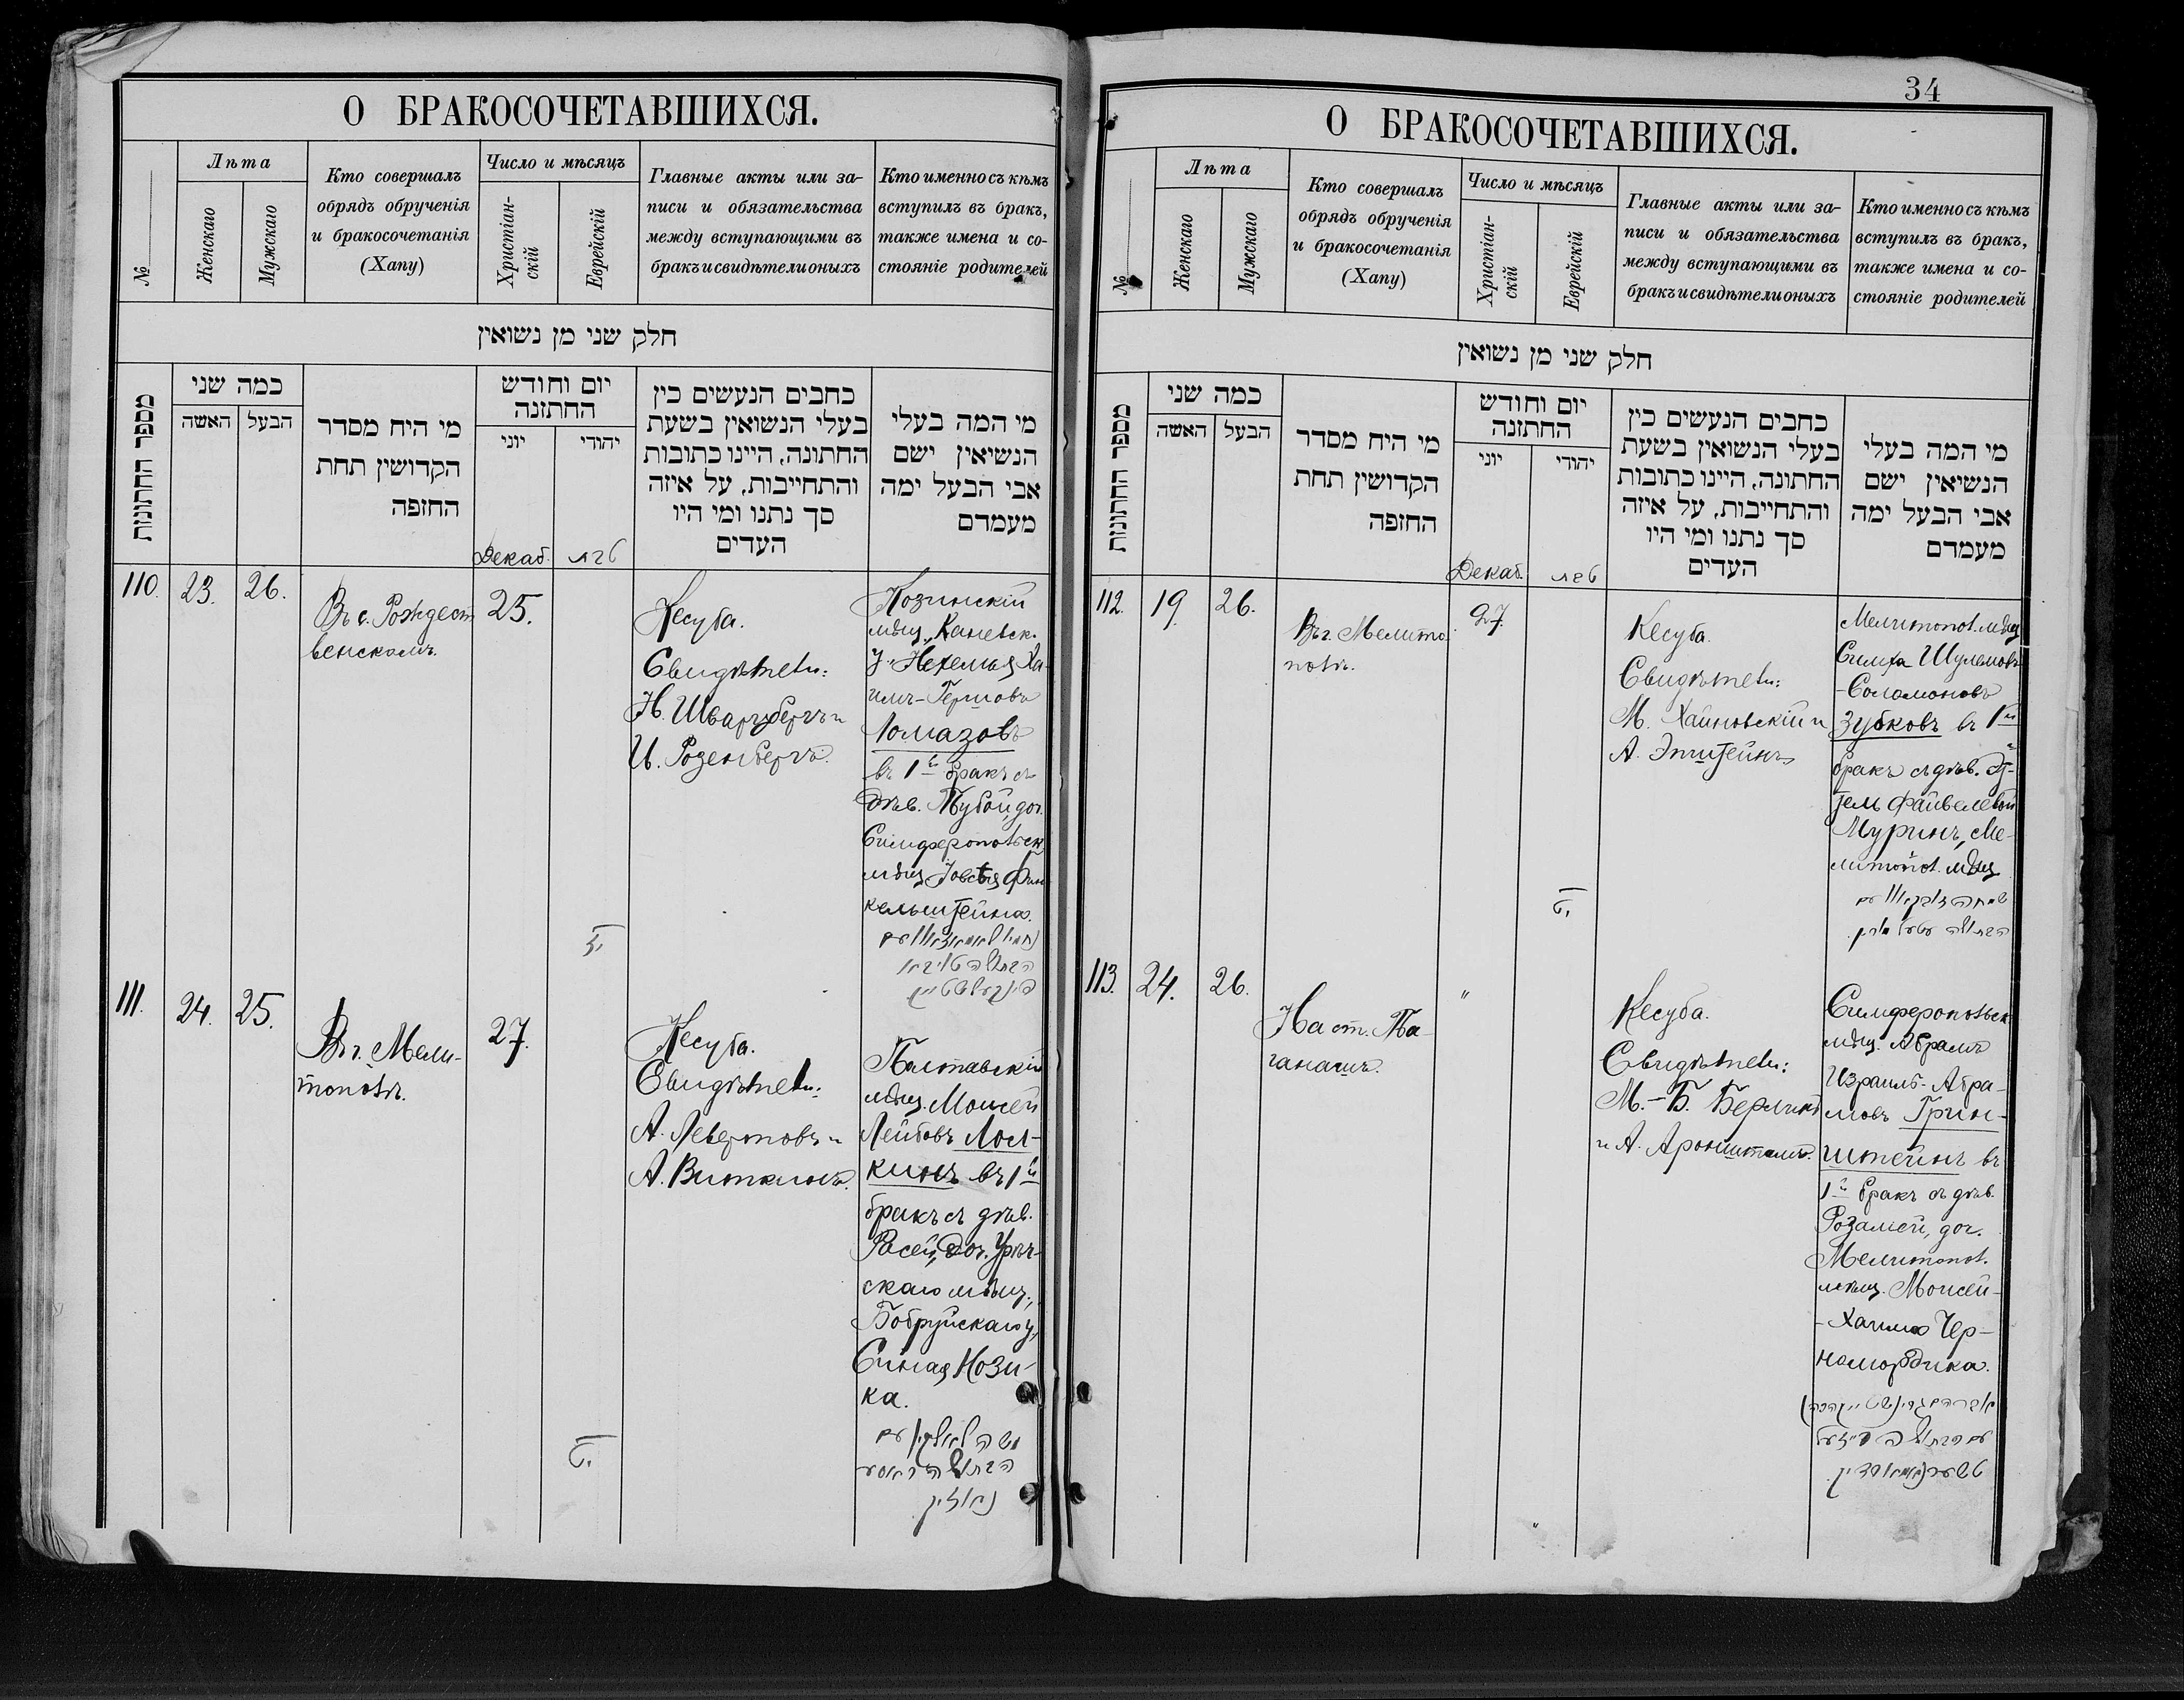 О БРАКОСОЧЕТАВШИХСЯ.
№
Лѣта
Женскаго
Мужскаго
Кто совершалъ
обрядъ обрученія
и бракосочетанія
(Хапу)
Число и мѣсяцъ
Христіан-
скій
Еврейскій
Главные акты или за-
писи и обязательства
между вступающими въ
бракъ и свидѣтели оныхъ
Кто именно съ кѣмъ
вступилъ въ бракъ,
также имена и со-
стояніе родителей
חלק שני מן נשואין
מספר החתונות
כמה שני
האשה
הבעל
מי היח מסדר
הקדושין תחת
החזפה
יום וחודש
החתזנה
יוני
יהודי
כחבים הנעשים כין
בעלי הנשואין בשעת
החתונה, היינו כתובות
והתחייבות, על איזה
סך נתנו ומי היו
העדים
מי המה בעלי
הנשיאין ישם
אבי הבעל ימה
מעמדם
Декаб.
טבת
110.
23.
26.
Въ с. Рождест
венскомъ.
25.
יז
Кесуба.
Свидѣтели:
Н. Шварцбергъ и
И. Розенбергъ.
Козинскій
мѣщ., Каневск.
у. Нехемья Ха-
имъ-Гершовъ
Ломазовъ
въ 1й бракъ съ
дѣв. Тубой, доч.
Симферопольск.
мѣщ. Іовсѣя Фин
кельштейна.
נחמי' לאמאזאוו עם
הבתולה טויבא
פינקעלשטיין
111.
24.
25.
Въ г. Мели-
тополѣ.
27.
יט
Кесуба.
Свидѣтели:
А. Левертовъ и
А. Виткинъ.
Полтавскій
мѣщ. Моисей
Лейбовъ Лол-
кинъ въ 1й
бракъ съ дѣв.
Расей, доч. Урѣч-
скаго мѣщ.,
Бобруйскаго у.,
Синая Нози-
ка.
משה לאלקין עם
הבתולה ראסע
נאזיק
34
О БРАКОСОЧЕТАВШИХСЯ.
№
Лѣта
Женскаго
Мужскаго
Кто совершалъ
обрядъ обрученія
и бракосочетанія
(Хапу)
Число и мѣсяцъ
Христіан-
скій
Еврейскій
Главные акты или за-
писи и обязательства
между вступающими въ
бракъ и свидѣтели оныхъ
Кто именно съ кѣмъ
вступилъ въ бракъ,
также имена и со-
стояніе родителей
חלק שני מן נשואין
מספר החתונות
כמה שני
האשה
הבעל
מי היח מסדר
הקדושין תחת
החזפה
יום וחודש
החתזנה
יוני
יהודי
כחבים הנעשים כין
בעלי הנשואין בשעת
החתונה, היינו כתובות
והתחייבות, על איזה
סך נתנו ומי היו
העדים
מי המה בעלי
הנשיאין ישם
אבי הבעל ימה
מעמדם
Декаб.
טבת
112.
19.
26.
Въ г. Мелито-
полѣ.
27.
יט
Кесуба.
Свидѣтели:
М. Хайновскій и
А. Эпштейнъ
Мелитопол. мѣщ
Симха Шулемовъ
-Соломоновъ
Зубковъ въ 1й
бракъ съ дѣв. Эт-
тель Файвелевой
Муринъ, Ме-
литопол. мѣщ.
שמחה זובקאוו עם
הבתולה עטעל מורין.
113.
24.
26.
На ст. Та-
ганашъ.
"
Кесуба.
Свидѣтели:
М.-Б. Берлинъ
и А. Аронштамъ.
Симферопольск
мѣщ. Абрамъ
Израиль-Абра-
мовъ Грин-
штейнъ въ
1й бракъ съ дѣв.
Розаліей, доч.
Мелитопол.
мѣщ. Моисей-
-Хаима Чер-
номордика.
אברהם גרינשטיין
עם הבתולה רייזעל
טשערנאמארדיק.
"